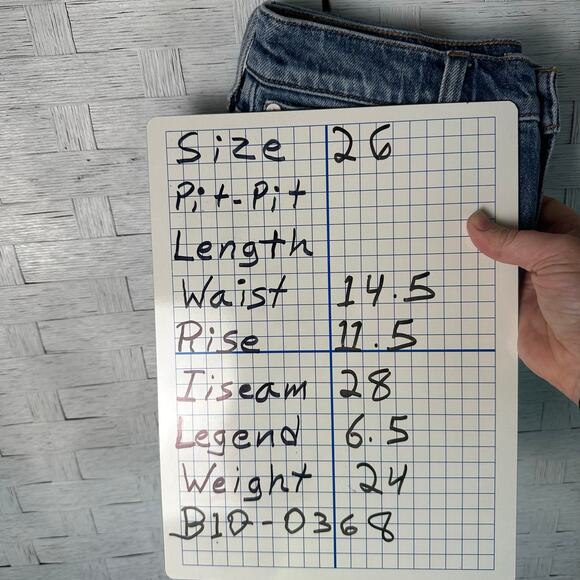 Size 26
Pit-Pit
Length
Waist 14.5
Rise 11.5
Iiseam 28
Legend 6.5
Weight 24
B10-0368